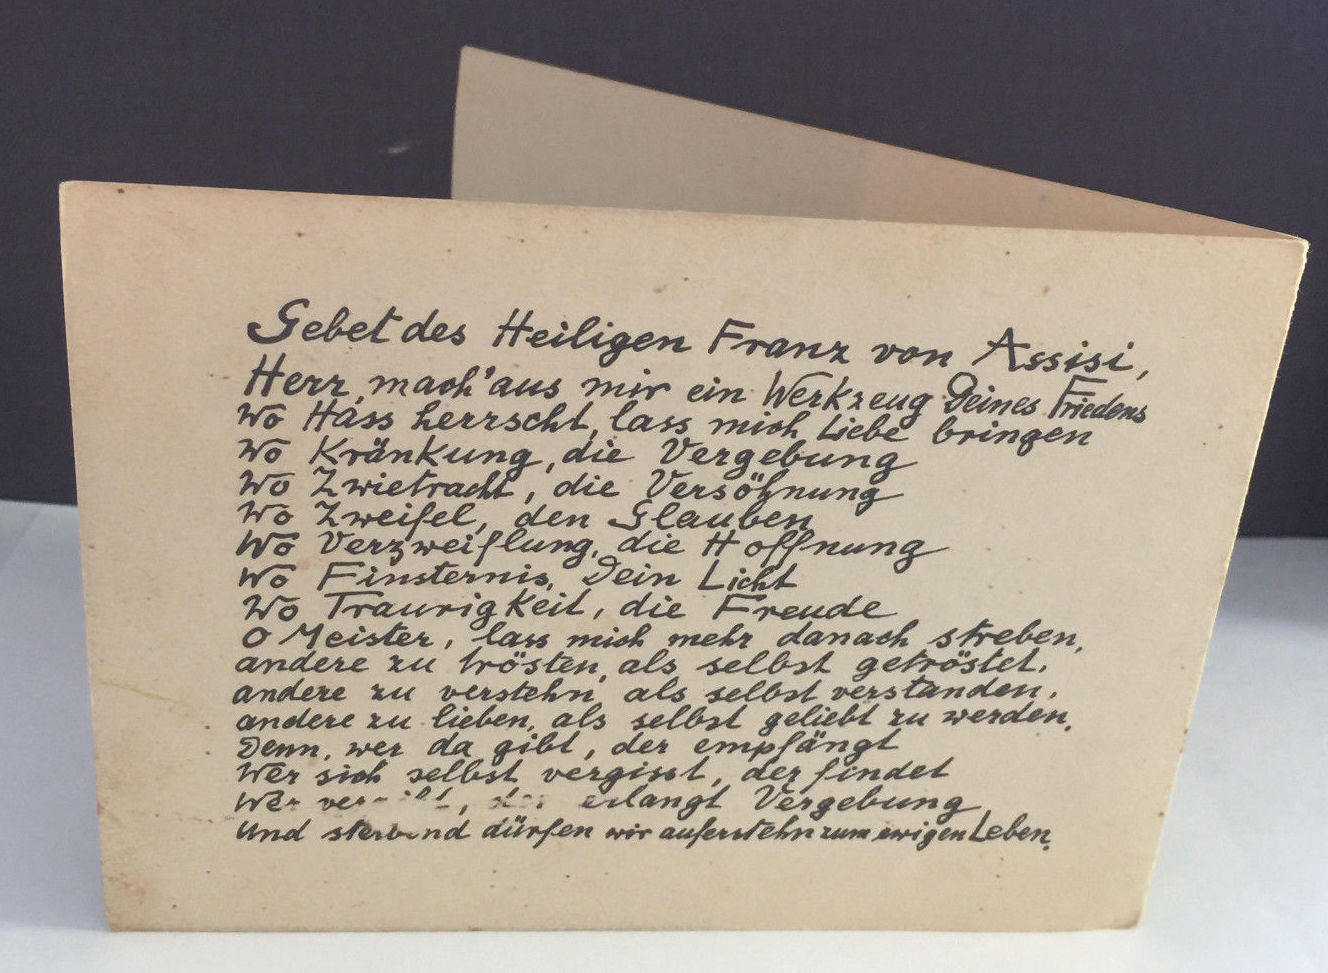 Gebet des Heiligen Franz von Assisi,
Herr, mach' aus mir ein Werkzeug Deines Friedens
Wo Hass herrscht, lass mich Liebe bringen
Wo Kränkung, die Vergebung
Wo Zwietracht, die Versöhnung
Wo Zweifel, den Glauben
Wo Verzweiflung, die Hoffnung
Wo Finsternis, Dein Licht
Wo Traurigkeit, die Freude
O Meister, lass mich mehr danach streben,
andere zu trösten, als selbst getröstet,
andere zu verstehn, als selbst verstanden,
andere zu lieben, als selbst geliebt zu werden.
Denn, wer da gibt, der empfängt
Wer sich selbst vergisst, der findet
Wer erlangt Vergebung
Und sterbend dürfen wir auferstehn zum ewigen Leben.